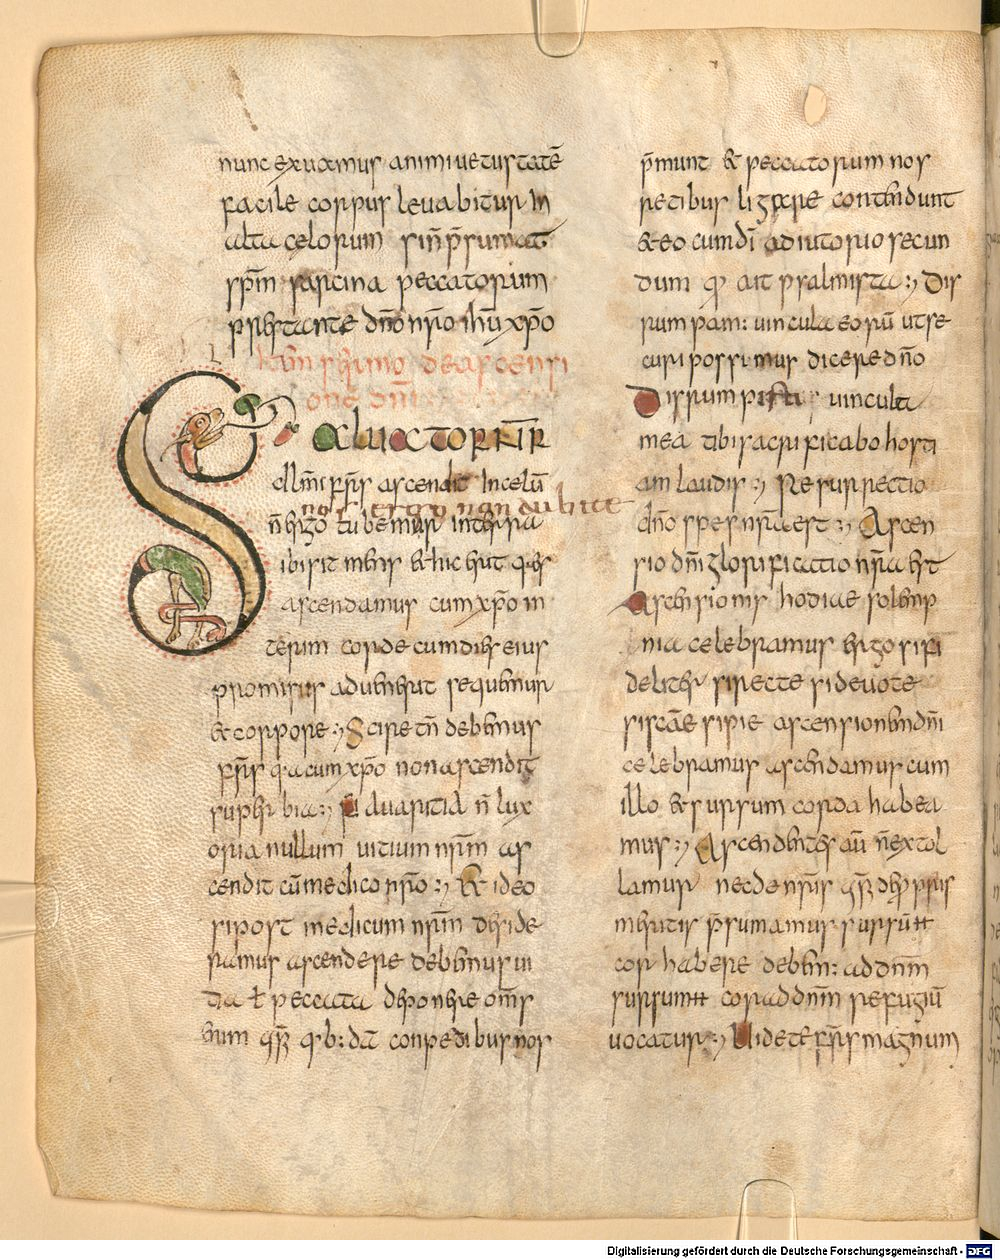 nunc exuamus animi uetustatē
facile corpus levabitur in
alta celorum si n̄ p̄sumat
sp̄m sarcina peccatorum
prestante dn̄o nr̄o ihū xp̄o
Itē sermo de ascensi
one dn̄i
Saluator nr̄
dilm̄i frs̄ ascendit in celū
nos ergo non dubite
n̄ ergo tubemur in terra
ibi sit mens & hic erit q̄es
ascendamus cum xp̄o in
terim corde cum dies eius
promisus aduenerit sequemur
& corpore :, Scire tn̄ debemus
frs̄ q̄a cum xp̄o non ascendit
superbia :, n̄ auaritia n̄ lux
oria nullum uitium nr̄m as
cendit cū medico nr̄o :, Et ideo
si post medicum nr̄m deside
ramus ascendere debemus ui
tia ł peccata deponere oms̄
enim quib: dā conpedibus nos
p̄munt & peccatorum nos
retibus ligare contendunt
& eo cum dī adiutorio secun
dum q̄ ait psalmista :, Dis
rumpam: uincula eorū ut se
curi possimus dicere dn̄o
Disrumpisti uincula
mea tibi sacrificabo hosti
am laudis :, Resurrectio
dn̄o spes nr̄a est :, Ascen
sio dn̄i glorificatio nr̄a est
Ascensionis hodiae solemp
nia celebramus ergo si fi
deliter si recte si devote
si scāe si pie ascensionem dn̄i
celebramus ascendamus cum
illo & sursum corda habea
mus :, Ascendentes aū n̄ extol
lamur nec de nr̄is q̄si de propris
meritis p̄sumamus sursū ++
cor habere debem: ad dnm̄
sursum ++ cor ad dnm̄ refugiū
uocatur :, Uidete frs̄ magnum
Digitalisierung gefördert durch die Deutsche Forschungsgemeinschaft - DFG